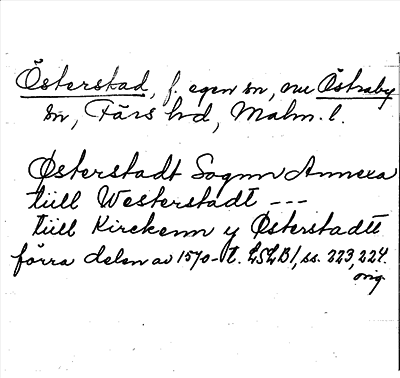 Österstad, f. egen sn, nu Östraby
sn, Färs hd, Malm. l.
Østerstadt Sognn Annexa
tiill Westerstadt ---
tiill Kirckenn y Østerstadtt
förra delen av 1570-t. LSLB1, ss. 223, 224.
orig.